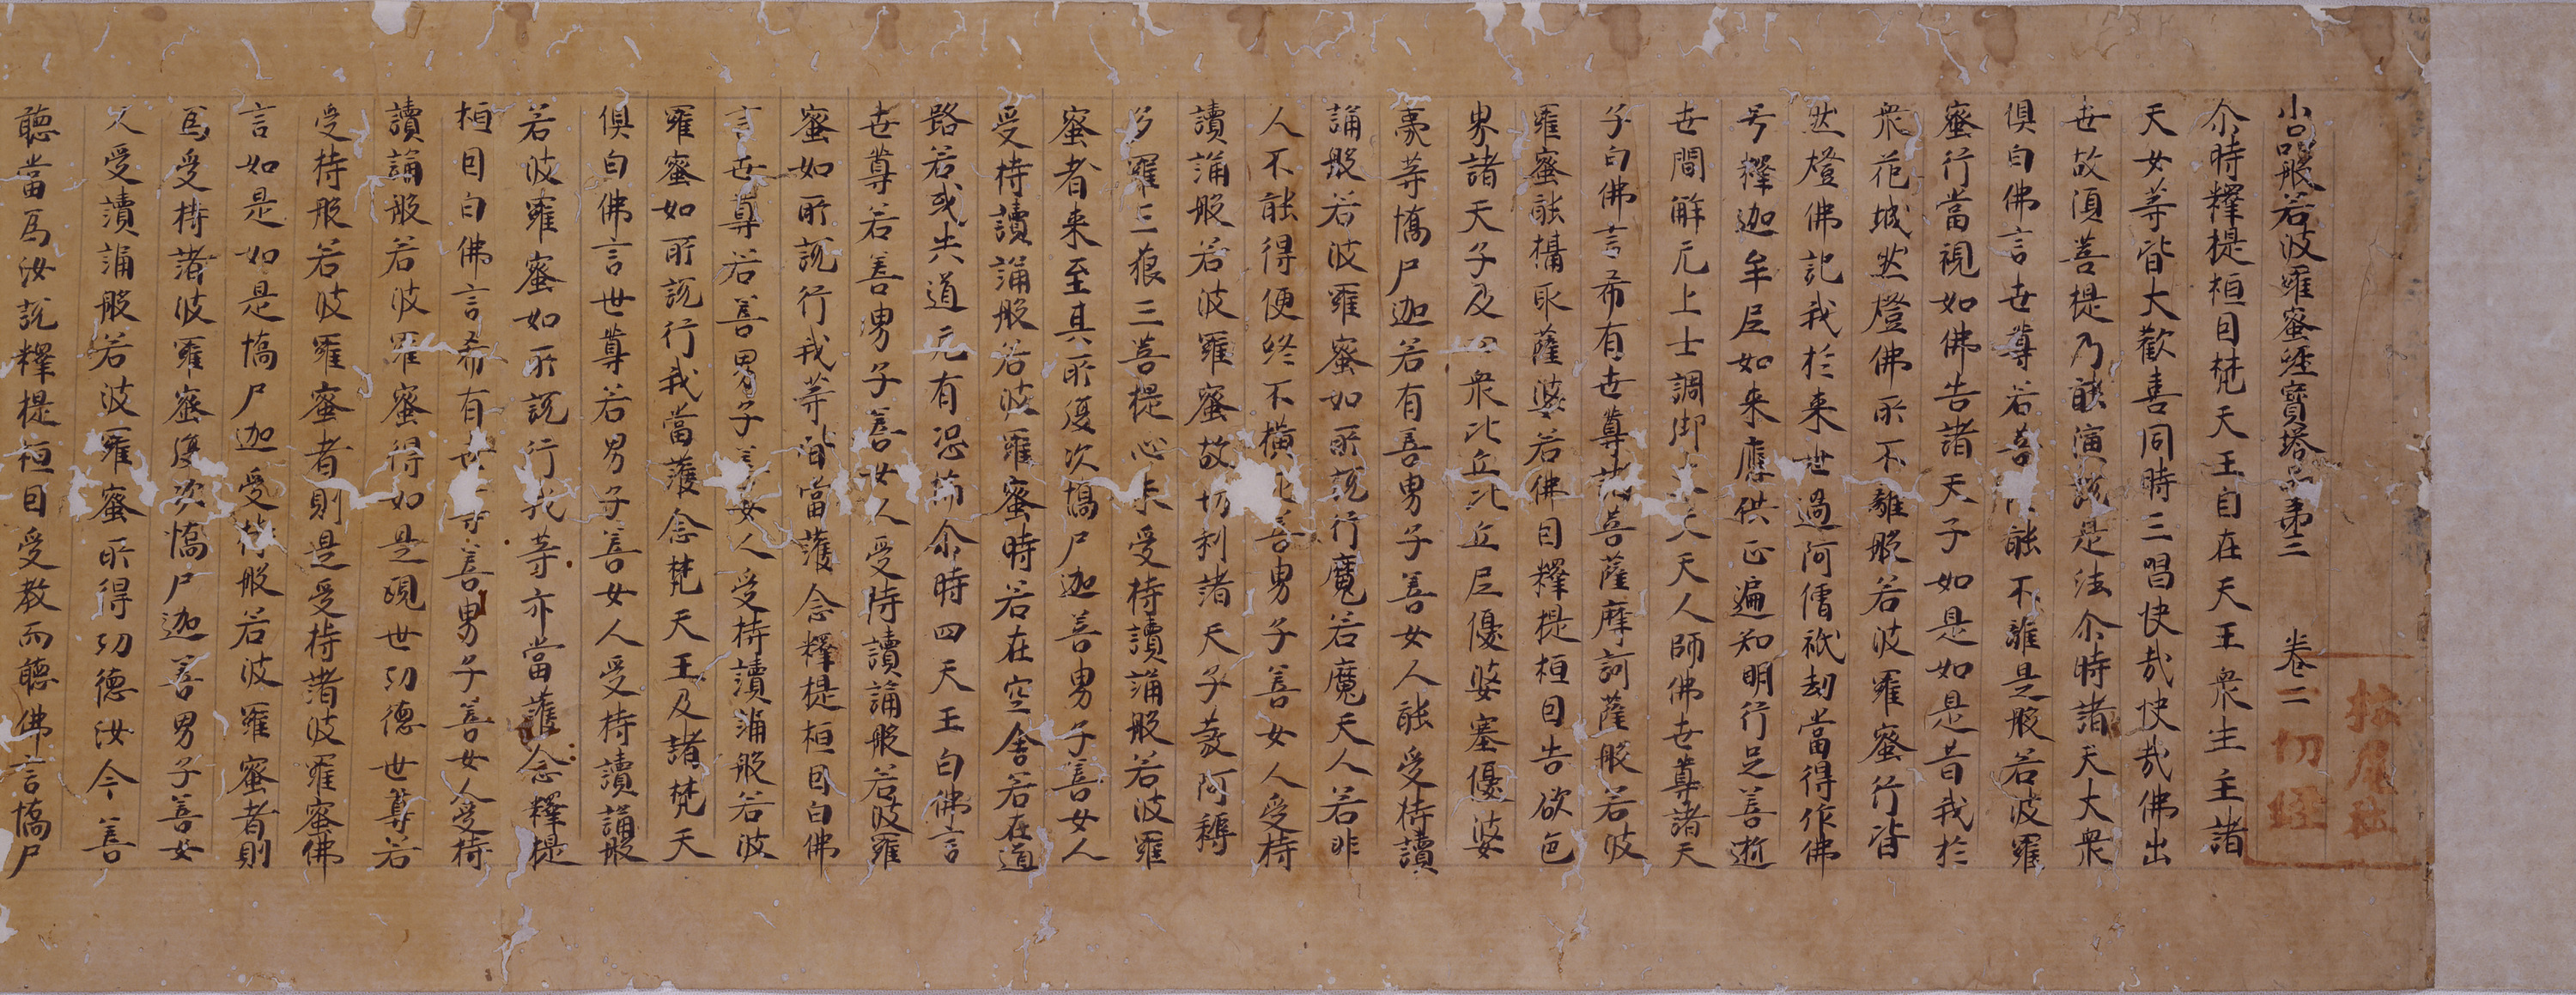 松尾社
一切經
小品般若波羅蜜經寶塔品第三 卷二
尒時釋提桓因梵天王自在天王衆生主諸
天女等皆大歡喜同時三唱快哉快哉佛出
世故湏菩提乃能演說是法尒時諸天大衆
俱白佛言世尊若菩能不離是般若波羅
蜜行當視如佛告諸天子如是如是昔我於
衆花城然燈佛所不離般若波羅蜜行皆
然燈佛記我於来世過阿僧祇劫當得作佛
号釋迦牟尼如来應供正遍知明行足善逝
世間解无上士調御天人師佛世尊諸天
子白佛言希有世尊諸菩薩摩訶薩般若波
羅蜜能攝取薩婆若佛因釋提桓因告欲色
界諸天子及四衆比丘比丘尼優婆塞優婆
夷等憍尸迦若有善男子善女人能受持讀
誦般若波羅蜜如所說行魔若魔天人若非
人不能得便終不橫死善男子善女人受持
讀誦般若波羅蜜故忉利諸天子發阿耨
多羅三狼三菩提心未受持讀誦般若波羅
蜜者来至其所復次憍尸迦善男子善女人
受持讀誦般若波羅蜜時若在空舍若在道
路若或失道无有恐怖尒時四天王白佛言
世尊若善男子善女人受持讀誦般若波羅
蜜如所說行我等皆當護念釋提桓因白佛
言世尊若善男子善女人受持讀誦般若波
羅蜜如所說行我當護念梵天王及諸梵天
俱白佛言世尊若男子善女人受持讀誦般
若波羅蜜如所說行我等亦當護念釋提
桓因白佛言希有世尊善男子善女人受持
讀誦般若波羅蜜得如是現世功德世尊若
受持般若波羅蜜者則是受持諸波羅蜜佛
言如是如是憍尸迦受持般若波羅蜜者則
爲受持諸波羅蜜復次憍尸迦善男子善女
人受讀誦般若波羅蜜所得功德汝今善
聽當爲汝說釋提桓因受教而聽佛言憍尸